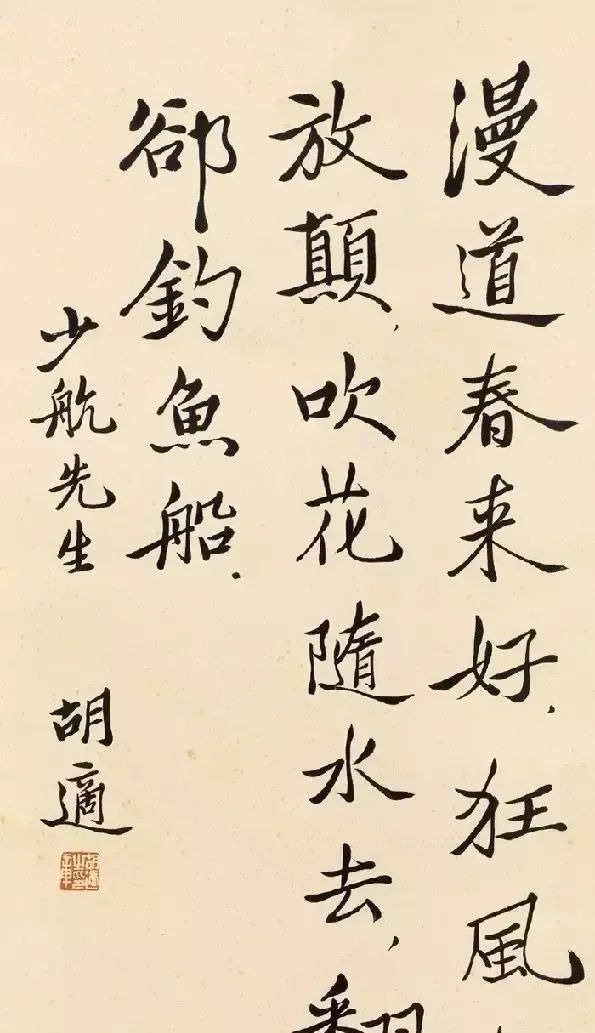 漫道春来好，狂風
放顛，吹花隨水去，翻
郤釣魚船．
少航先生
胡適